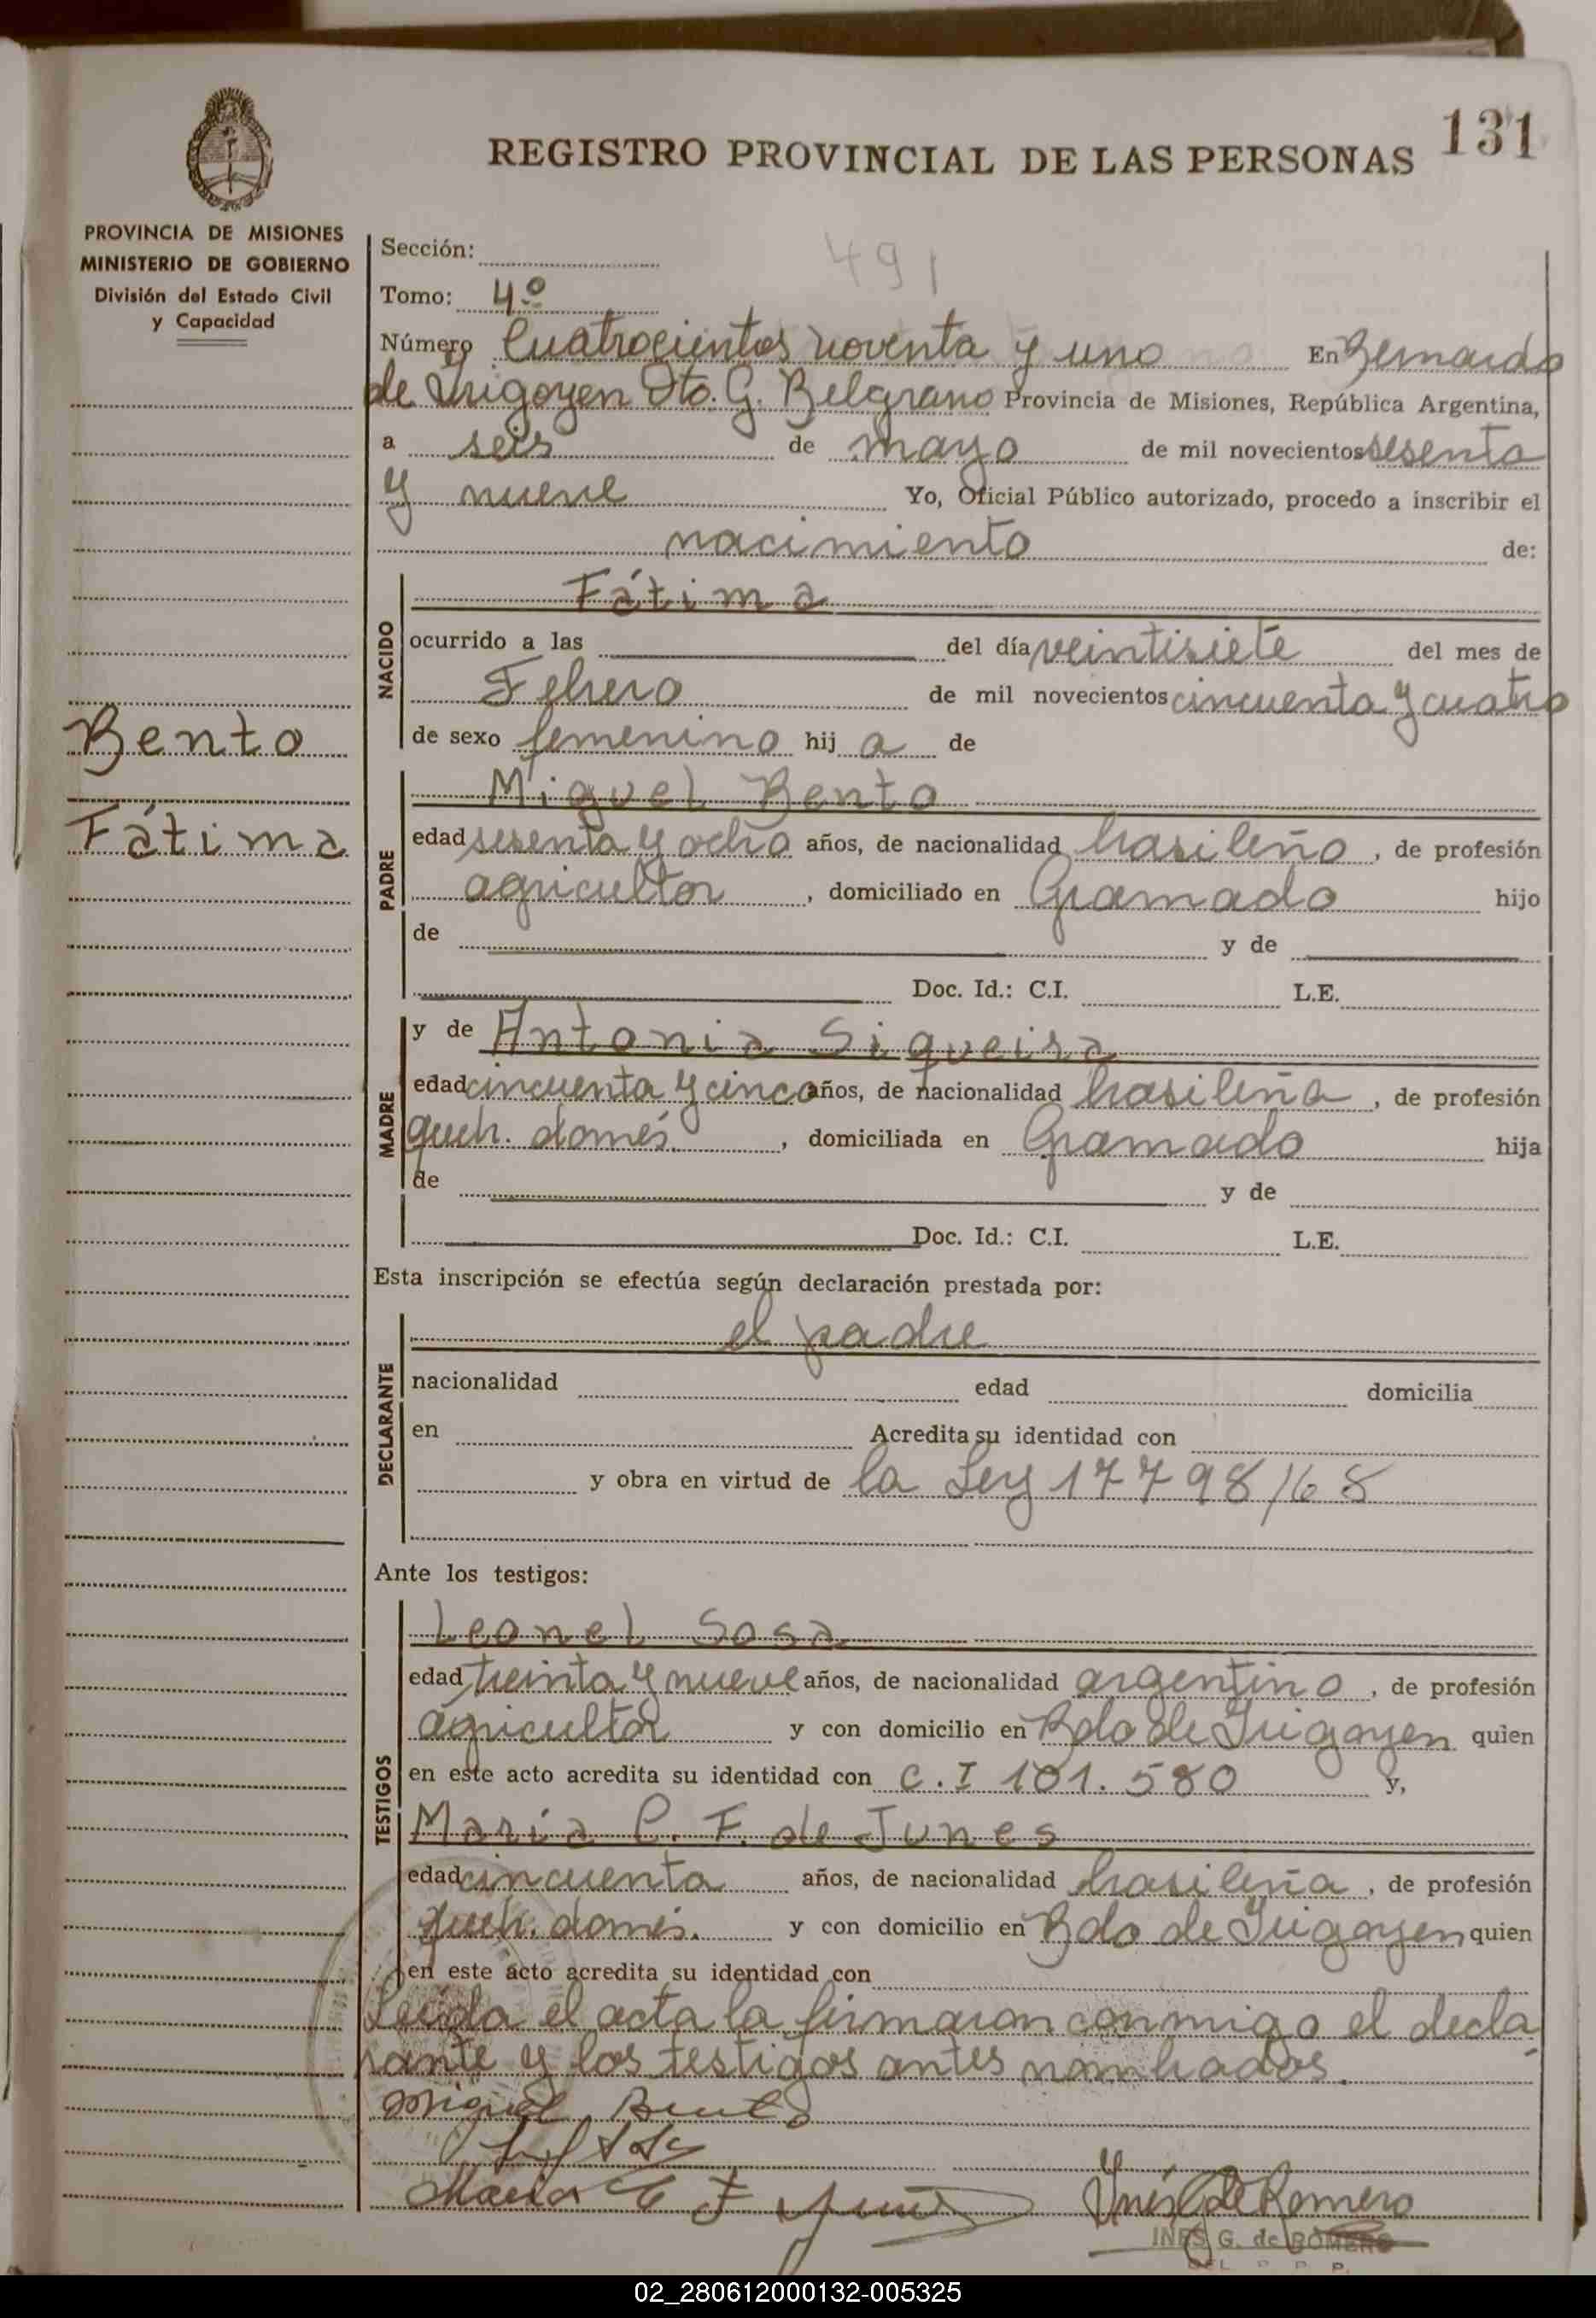 131
REGISTRO PROVINCIAL DE LAS PERSONAS
PROVINCIA DE MISIONES
MINISTERIO DE GOBIERNO
División del Estado Civil
y Capacidad
Bento
Fátima
491
Sección:
Tomo: 4º
Número Cuatrocientos noventa y uno En Bernardo
de Irigoyen Dto. G. Belgrano Provincia de Misiones, República Argentina,
a seis de mayo de mil novecientos sesenta
y nueve Yo, Oficial Público autorizado, procedo a inscribir el
nacimiento de:
NACIDO
Fátima
ocurrido a las del día veintisiete del mes de
Febrero de mil novecientos cincuenta y cuatro
de sexo femenino hij a de
PADRE
Miguel Bento
edad sesenta y ocho años, de nacionalidad brasileño, de profesión
agricultor, domiciliado en Gramado hijo
de y de
Doc. Id.: C.I. L.E.
MADRE
y de Antonia Siqueira
edad cincuenta y cinco años, de nacionalidad brasileña, de profesión
queh. domés., domiciliada en Gramado hija
de y de
Doc. Id.: C.I. L.E.
Esta inscripción se efectúa según declaración prestada por:
DECLARANTE
el padre
nacionalidad edad domicilia
en Acredita su identidad con
y obra en virtud de la Ley 17798/68
Ante los testigos:
TESTIGOS
Leonel Sosa
edad treinta y nueve años, de nacionalidad argentino, de profesión
agricultor y con domicilio en Bdo de Irigoyen quien
en este acto acredita su identidad con C.I 101.580 y,
María C. F. de Junes
edad cincuenta años, de nacionalidad brasileña, de profesión
queh. domés. y con domicilio en Bdo de Irigoyen quien
en este acto acredita su identidad con
Leída el acta la firmaron conmigo el decla
rante y los testigos antes nombrados.
Miguel Bento
Maria C F
Inés G de Romero
INES G. de ROMERO
02_280612000132-005325